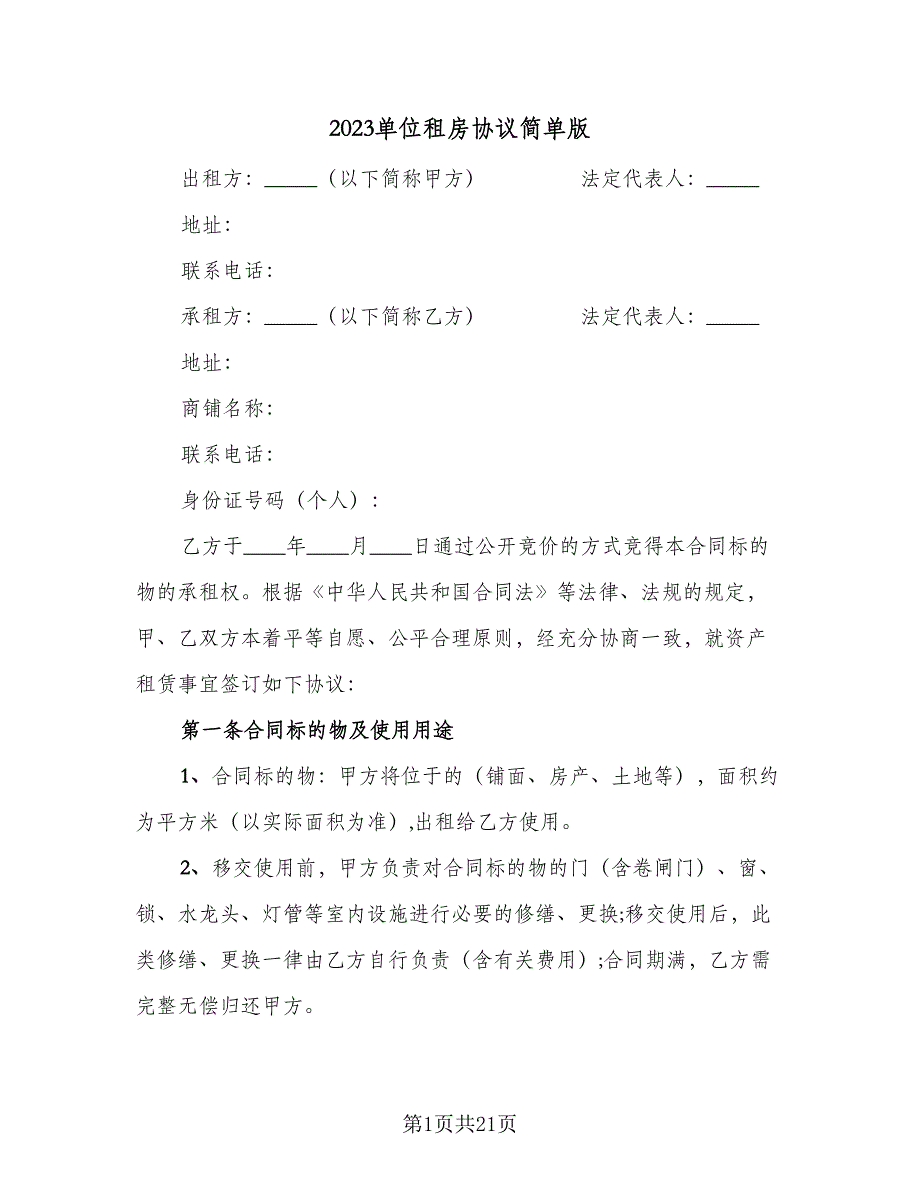 2023单位租房协议简单版
出租方：_____（以下简称甲方） 法定代表人：_____
地址：
联系电话：
承租方：_____（以下简称乙方） 法定代表人：_____
地址：
商铺名称：
联系电话：
身份证号码（个人）：
乙方于____年____月____日通过公开竞价的方式竞得本合同标的
物的承租权。根据《中华人民共和国合同法》等法律、法规的规定，
甲、乙双方本着平等自愿、公平合理原则，经充分协商一致，就资产
租赁事宜签订如下协议：
第一条合同标的物及使用用途
1、合同标的物：甲方将位于的（铺面、房产、土地等），面积约
为平方米（以实际面积为准）,出租给乙方使用。
2、移交使用前，甲方负责对合同标的物的门（含卷闸门）、窗、
锁、水龙头、灯管等室内设施进行必要的修缮、更换;移交使用后，此
类修缮、更换一律由乙方自行负责（含有关费用）;合同期满，乙方需
完整无偿归还甲方。
第1页共21页